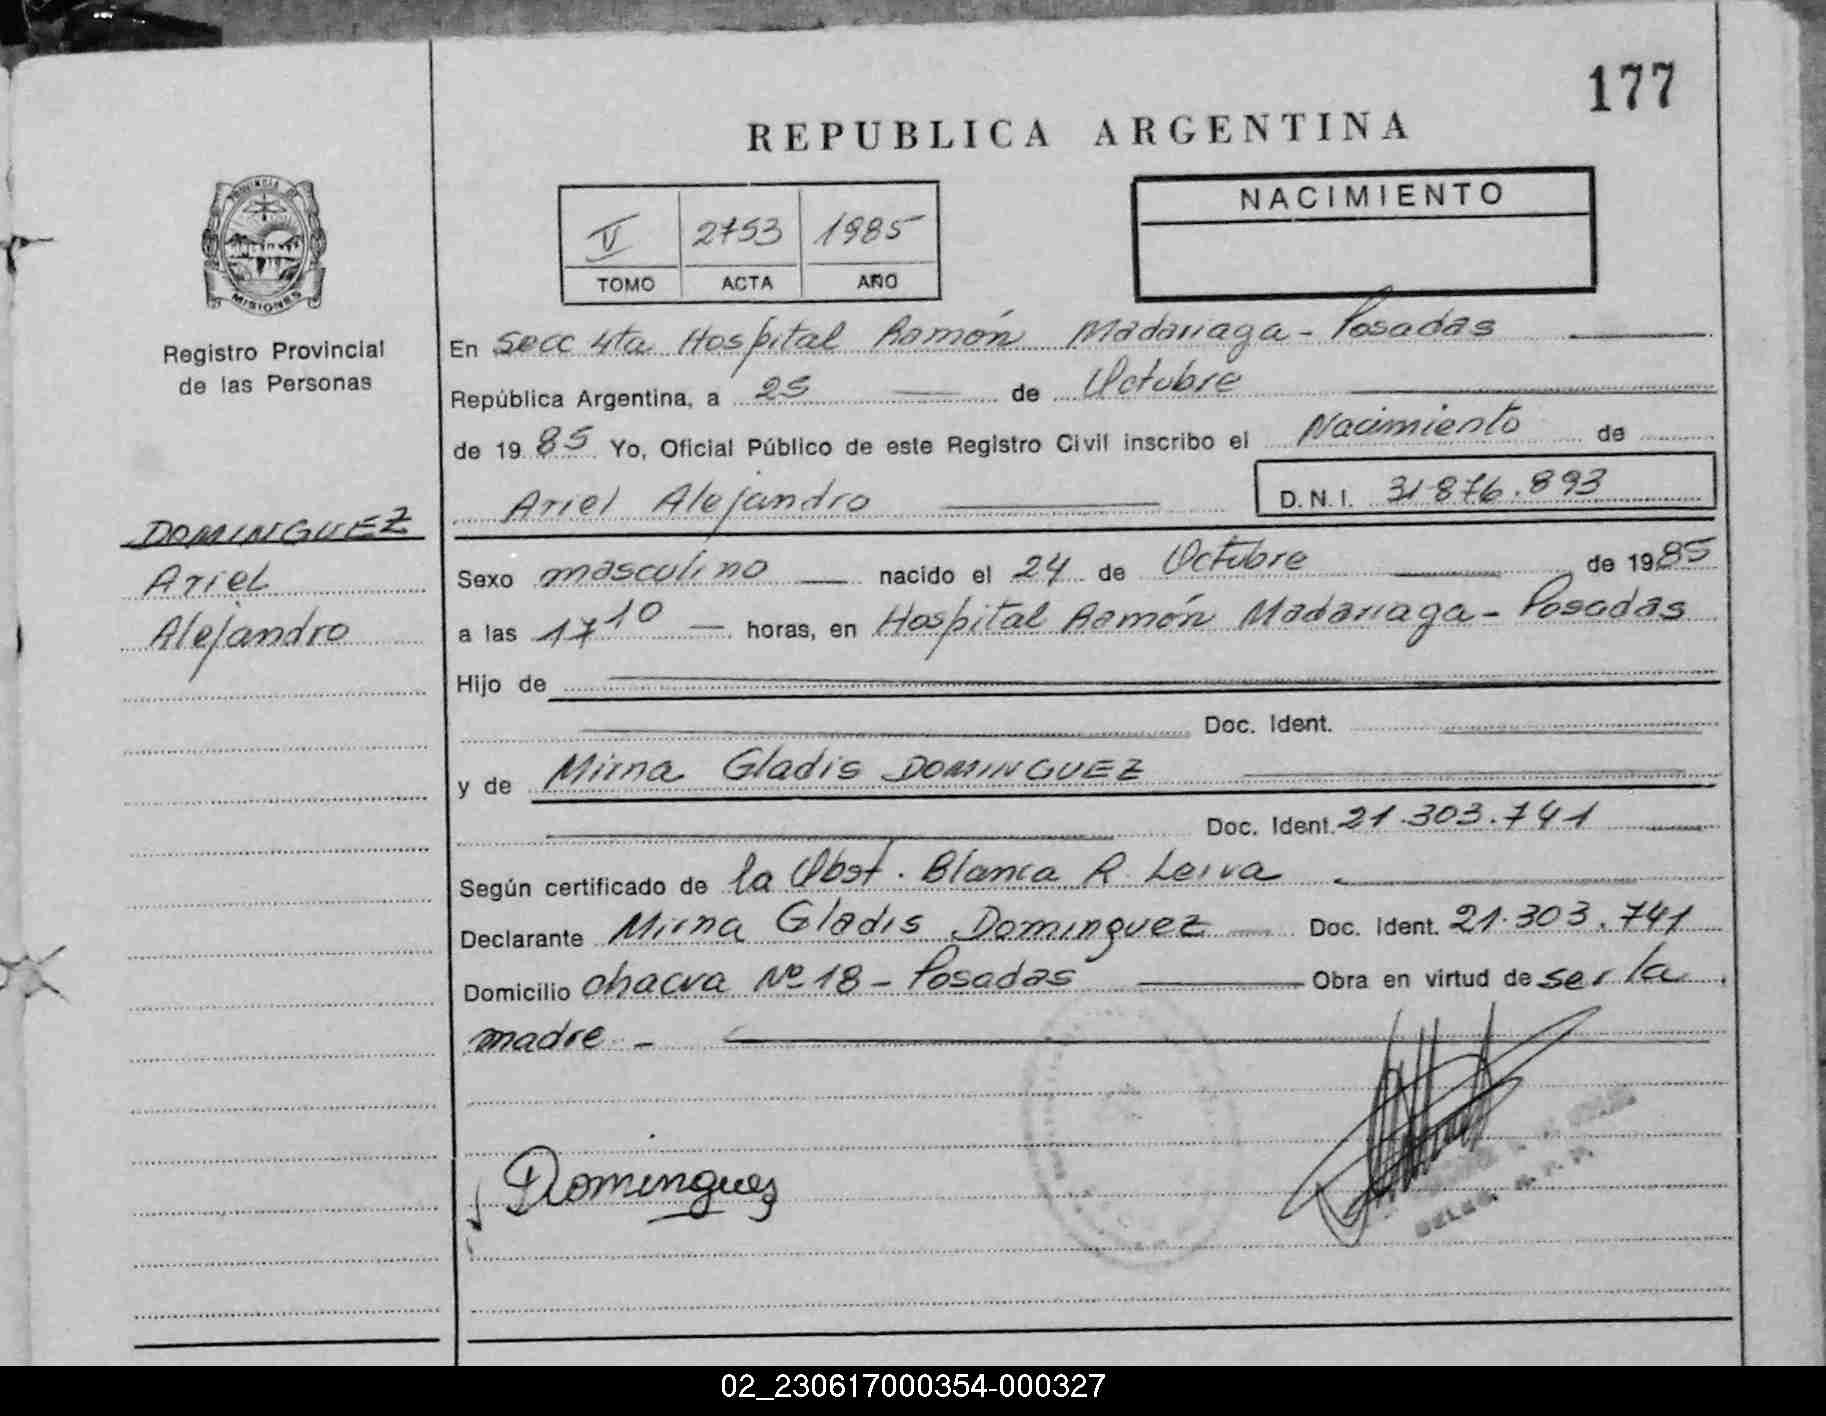 177
REPUBLICA ARGENTINA
PROVINCIA DE
MISIONES
Registro Provincial
de las Personas
V 2753 1985
TOMO ACTA AÑO
NACIMIENTO
En Secc 4ta Hospital Ramón Madariaga - Posadas
República Argentina, a 25 de Octubre
de 19 85 Yo, Oficial Público de este Registro Civil inscribo el Nacimiento de
Ariel Alejandro D.N.I. 31.876.893
DOMINGUEZ
Ariel
Alejandro
Sexo masculino nacido el 24 de Octubre de 1985
a las 17 10 horas, en Hospital Ramón Madariaga - Posadas
Hijo de
Doc. Ident.
y de Mirna Gladis DOMINGUEZ
Doc. Ident. 21.303.741
Según certificado de la Obst. Blanca R. Leiva
Declarante Mirna Gladis Dominguez Doc. Ident. 21.303.741
Domicilio chacra Nº 18 - Posadas Obra en virtud de ser la
madre -
Dominguez
02_230617000354-000327